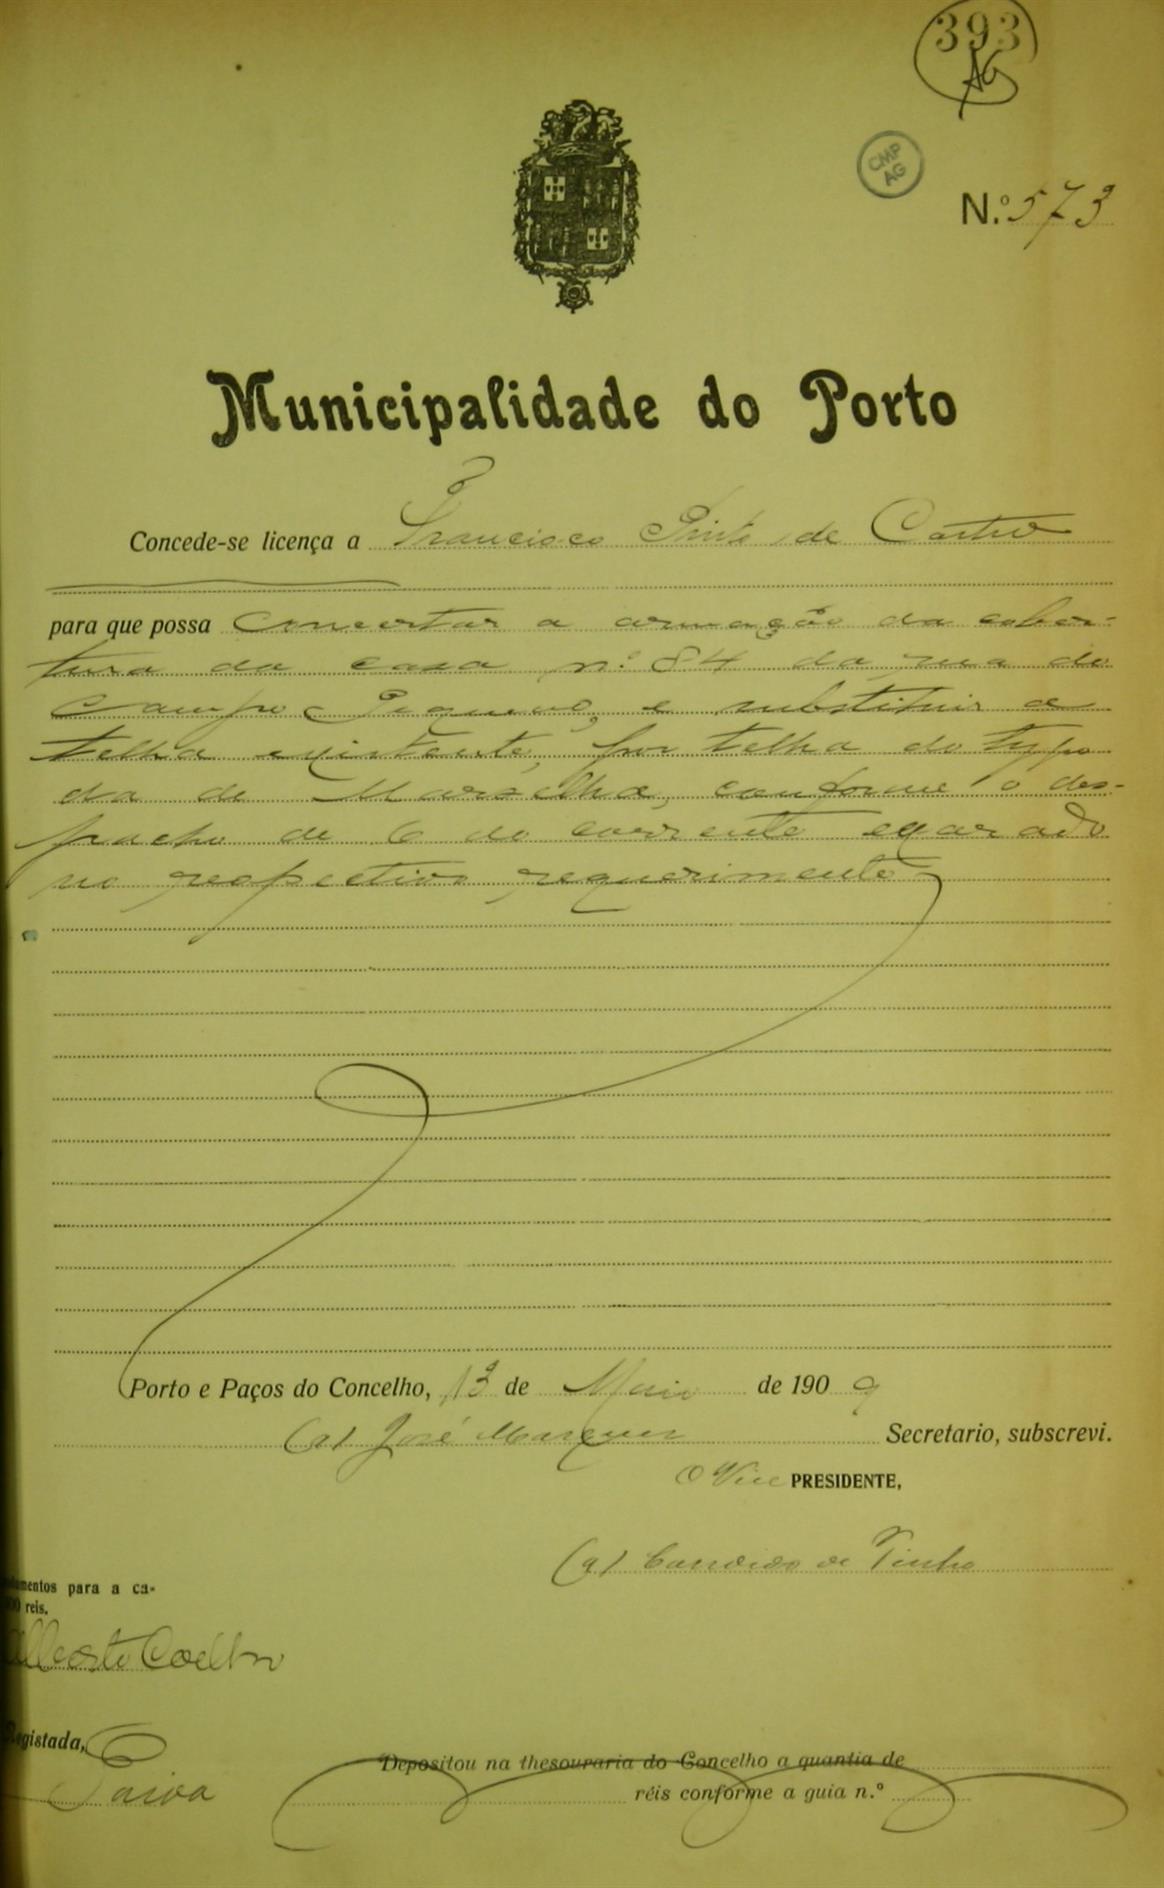 393
AG
CMP
AG
N.º 573
Municipalidade do Porto
Concede-se licença a Francisco Pinto de Castro
para que possa concertar a armação da cober-
tura da casa n.º 84 da rua do
Campo Pequeno, e substituir a
telha existente, por telha do typo
da de Marselha, conforme o des-
pacho de 6 do corrente exarado
no respectivo requerimento
Porto e Paços do Concelho, 13 de Maio de 1909
(a) José Marques Secretario, subscrevi.
O Vice PRESIDENTE,
(a) Candido de Pinho
para a ca-
reis.
Alberto Coelho
Registada,
Paiva
Depositou na thesouraria do Concelho a quantia de
réis conforme a guia n.º